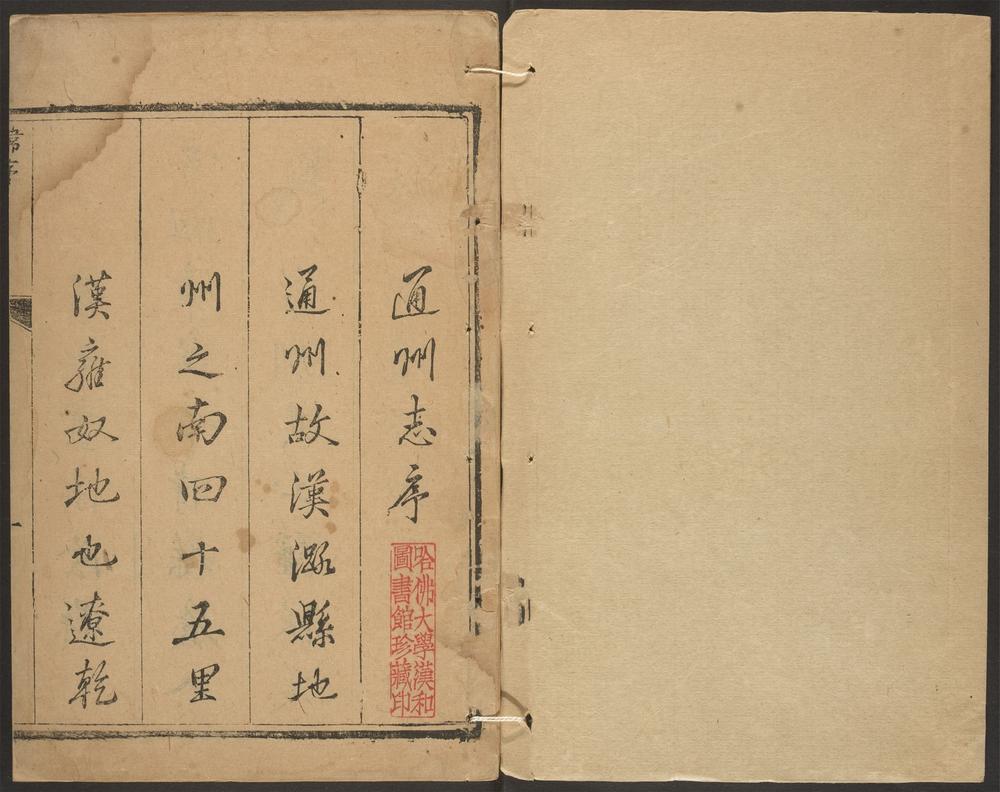 通州志序
哈佛大學漢和
圖書館珍藏印
通州故漢潞縣地
州之南四十五里
漢雍奴地也遼乾